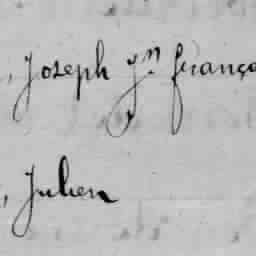 , Joseph Jn. franço
, Julien